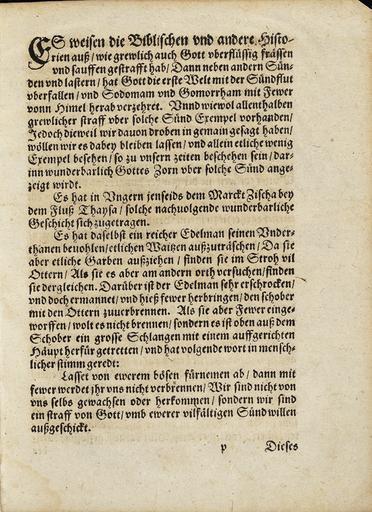 ES weisen die Biblischen vnd andere Histo-
rien auß/ wie grewlich auch Gott vberflüssig frässen
vnd sauffen gestrafft hab/ Dann neben andern Sün-
den vnd lastern/ hat Gott die erste Welt mit der Sündflut
vberfallen/ vnd Sodomam vnd Gomorrham mit Fewer
vonn Himel herab verzehret. Vnnd wiewol allenthalben
grewlicher straff vber solche Sünd Exempel vorhanden/
Jedoch dieweil wir dauon droben in gemain gesagt haben/
wöllen wir es dabey bleiben lassen/ vnd allein etliche wenig
Exempel besehen/ so zu vnsern zeiten beschehen sein/ dar-
inn wunderbarlich Gottes Zorn vber solche Sünd ange-
zeigt wirdt.
Es hat in Vngern jenseids dem Marckt Zischa bey
dem Fluß Thaysa/ solche nachuolgende wunderbarliche
Geschicht sich zugetragen.
Es hat daselbst ein reicher Edelman seinen Vnder-
thanen beuohlen/ etlichen Waitzen außzuträschen/ Da sie
aber etliche Garben außziehen/ finden sie im Stroh vil
Ottern/ Als sie es aber am andern orth versuchen/ finden
sie dergleichen. Darüber ist der Edelman sehr erschrocken/
vnd doch ermannet/ vnd hieß fewer herbringen/ den schober
mit den Ottern zuuerbrennen. Als sie aber Fewer einge-
worffen/ wolt es nicht brennen/ sondern es ist oben auß dem
Schober ein grosse Schlangen mit einem auffgerichten
Haupt herfür getretten/ vnd hat volgende wort in mensch-
licher stimm geredt:
Lasset von ewerem bösen fürnemen ab/ dann mit
fewer werdet jhr vns nicht verbrennen/ Wir sind nicht von
vns selbs gewachsen oder herkommen/ sondern wir sind
ein straff von Gott/ vmb ewerer vilfältigen Sünd willen
außgeschickt.
p Dieses